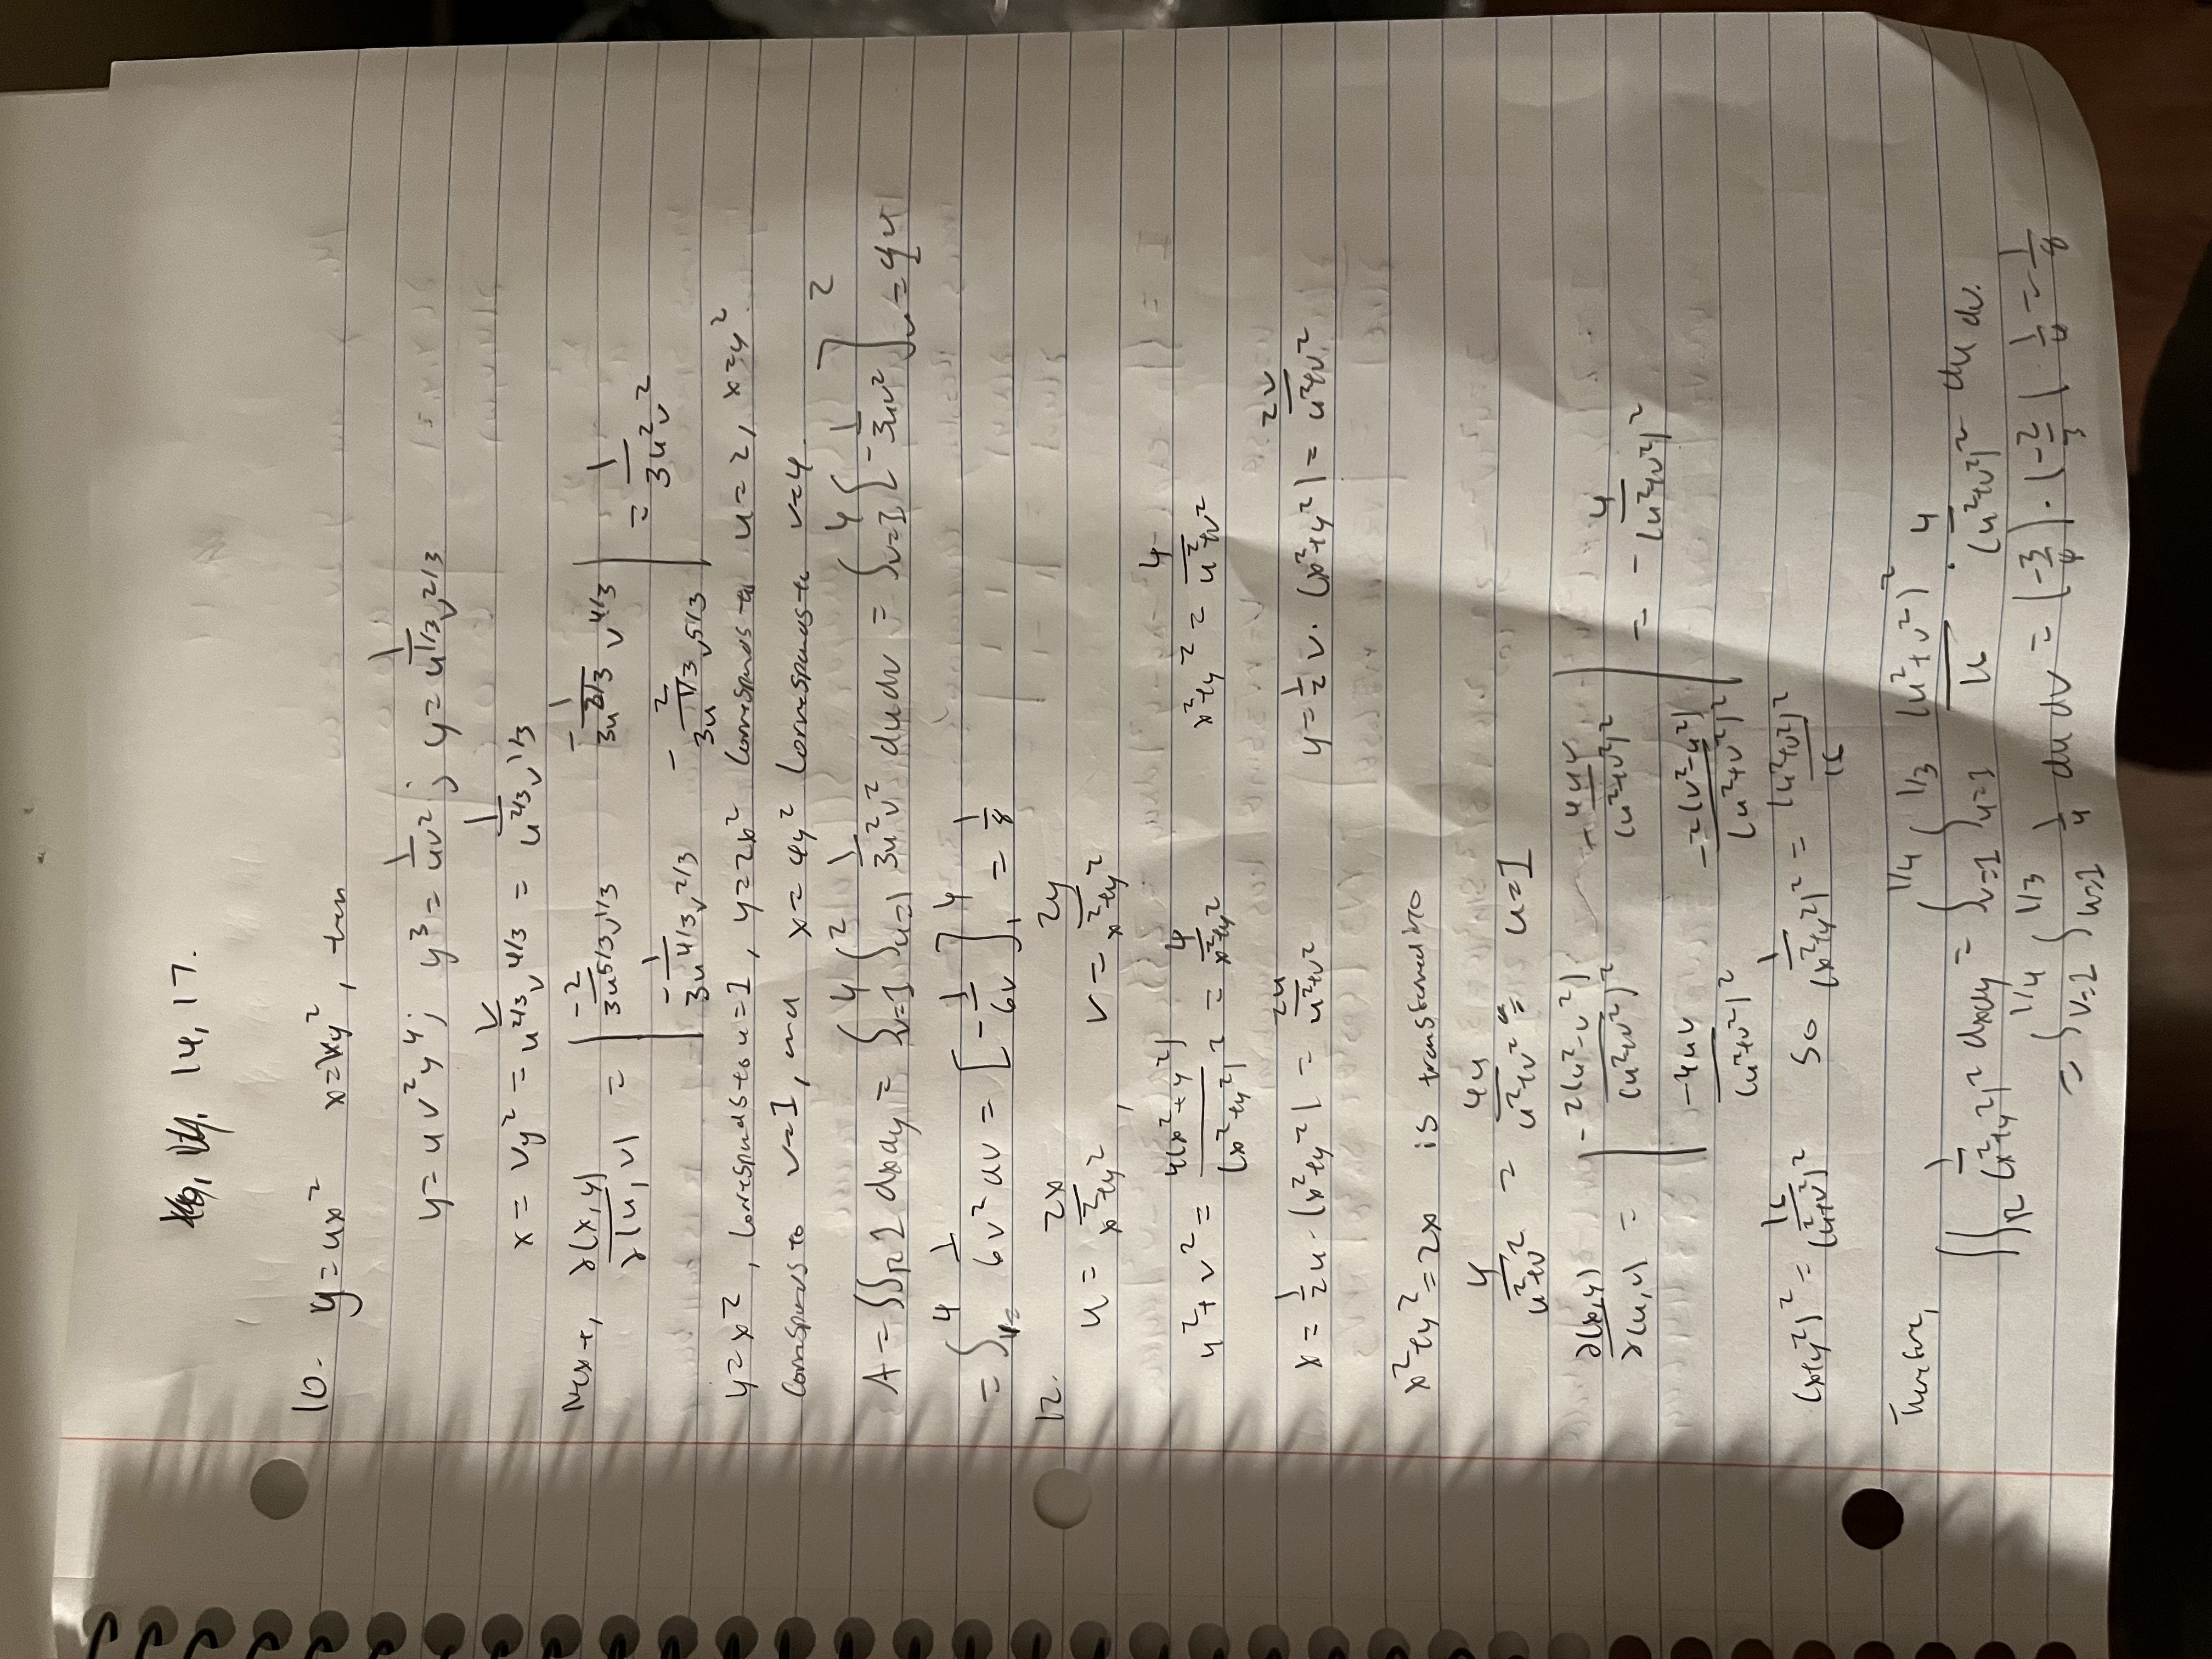 14, 17.
10. y = ux² x = vy², then
y = uv²y⁴; y³ = 1/(uv²); y = 1/(u^(1/3) v^(2/3))
x = vy² = v/(u^(2/3) v^(4/3)) = 1/(u^(2/3) v^(1/3))
Next, ∂(x,y)/∂(u,v) = | -2/(3u^(5/3) v^(1/3)) -1/(3u^(2/3) v^(4/3)) | = 1/(3u²v²)
| -1/(3u^(4/3) v^(2/3)) -2/(3u^(1/3) v^(5/3)) |
y = x², corresponds to u = 1, y = 2x² corresponds to u = 2, x = y²
corresponds to v = 1, and x = 4y² corresponds to v = 4.
A = ∬_R 1 dxdy = ∫_{v=1}^{4} ∫_{u=1}^{2} 1/(3u²v²) du dv = ∫_{v=1}^{4} [-1/(3uv²)]² dv
= ∫_{v=}^{4} 1/(6v²) dv = [-1/(6v)]_1^4 = 1/8
12.
u = 2x/(x²+y²), v = 2y/(x²+y²)
u² + v² = 4(x²+y²)/(x²+y²)² = 4/(x²+y²) x²+y² = 4/(u²+v²)
x = ½u · (x²+y²) = 2u/(u²+v²) y = ½v · (x²+y²) = 2v/(u²+v²)
x²+y² = 2x is transformed into
4/(u²+v²) = 4u/(u²+v²) = u = 1
∂(x,y)/∂(u,v) = | -2(u²-v²)/(u²+v²)² -4uv/(u²+v²)² | = -4/(u²+v²)²
| -4uv/(u²+v²)² -2(v²-u²)/(u²+v²)² |
(x+y²)² = 16/(u²+v²)² so 1/(x²+y²)² = (u²+v²)²/16
Therefore,
∬_R 1/(x²+y²)² dxdy = ∫_{v=1}^{1/4} ∫_{u=1}^{1/3} (u²+v²)²/16 · 4/(u²+v²)² du dv.
= ∫_{v=1}^{1/4} ∫_{u=1}^{1/3} 1/4 du dv = (-3/4) · (-2/3) · 1/4 = 1/8